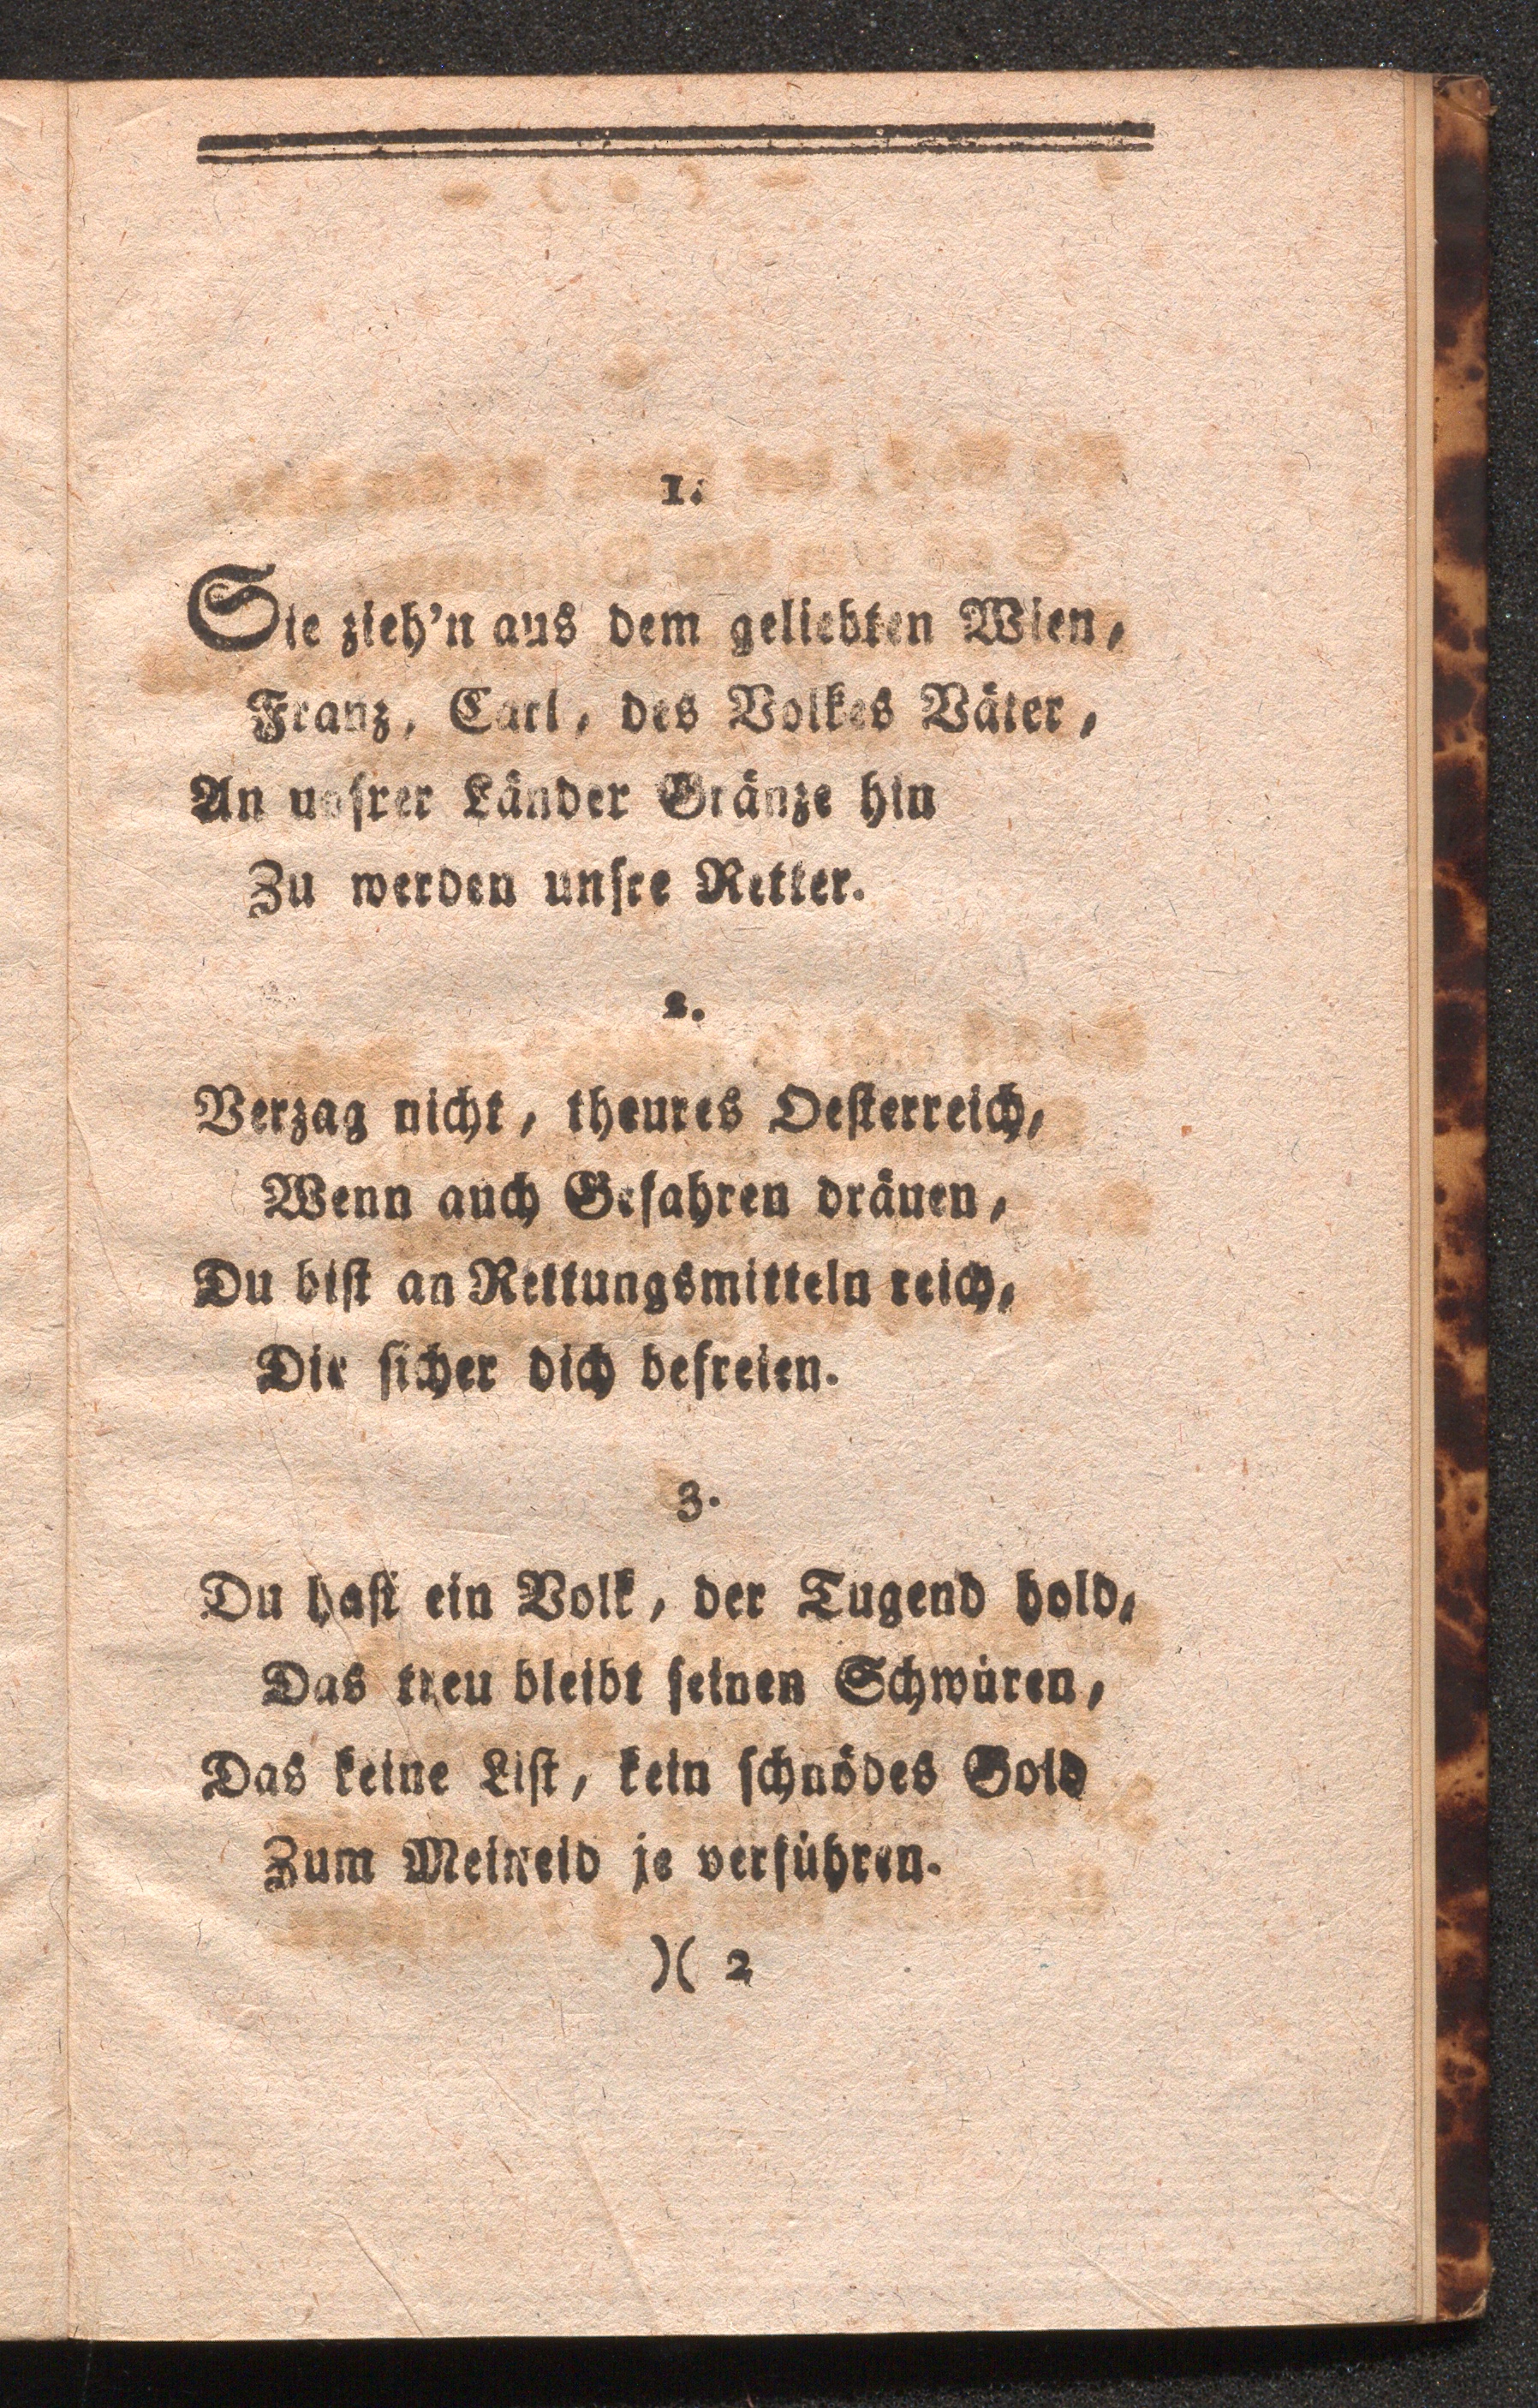 1.
Sie zieh'n aus dem geliebten Wien,
Franz, Carl, des Volkes Väter,
An unsrer Länder Gränze hin
Zu werden unsre Retter.
2.
Verzag nicht, theures Oesterreich,
Wenn auch Gefahren dräuen,
Du bist an Rettungsmitteln reich,
Die sicher dich befreien.
3.
Du hast ein Volk, der Tugend hold,
Das treu bleibt seinen Schwüren,
Das keine List, kein schnödes Gold
Zum Meineid je verführen.
)( 2